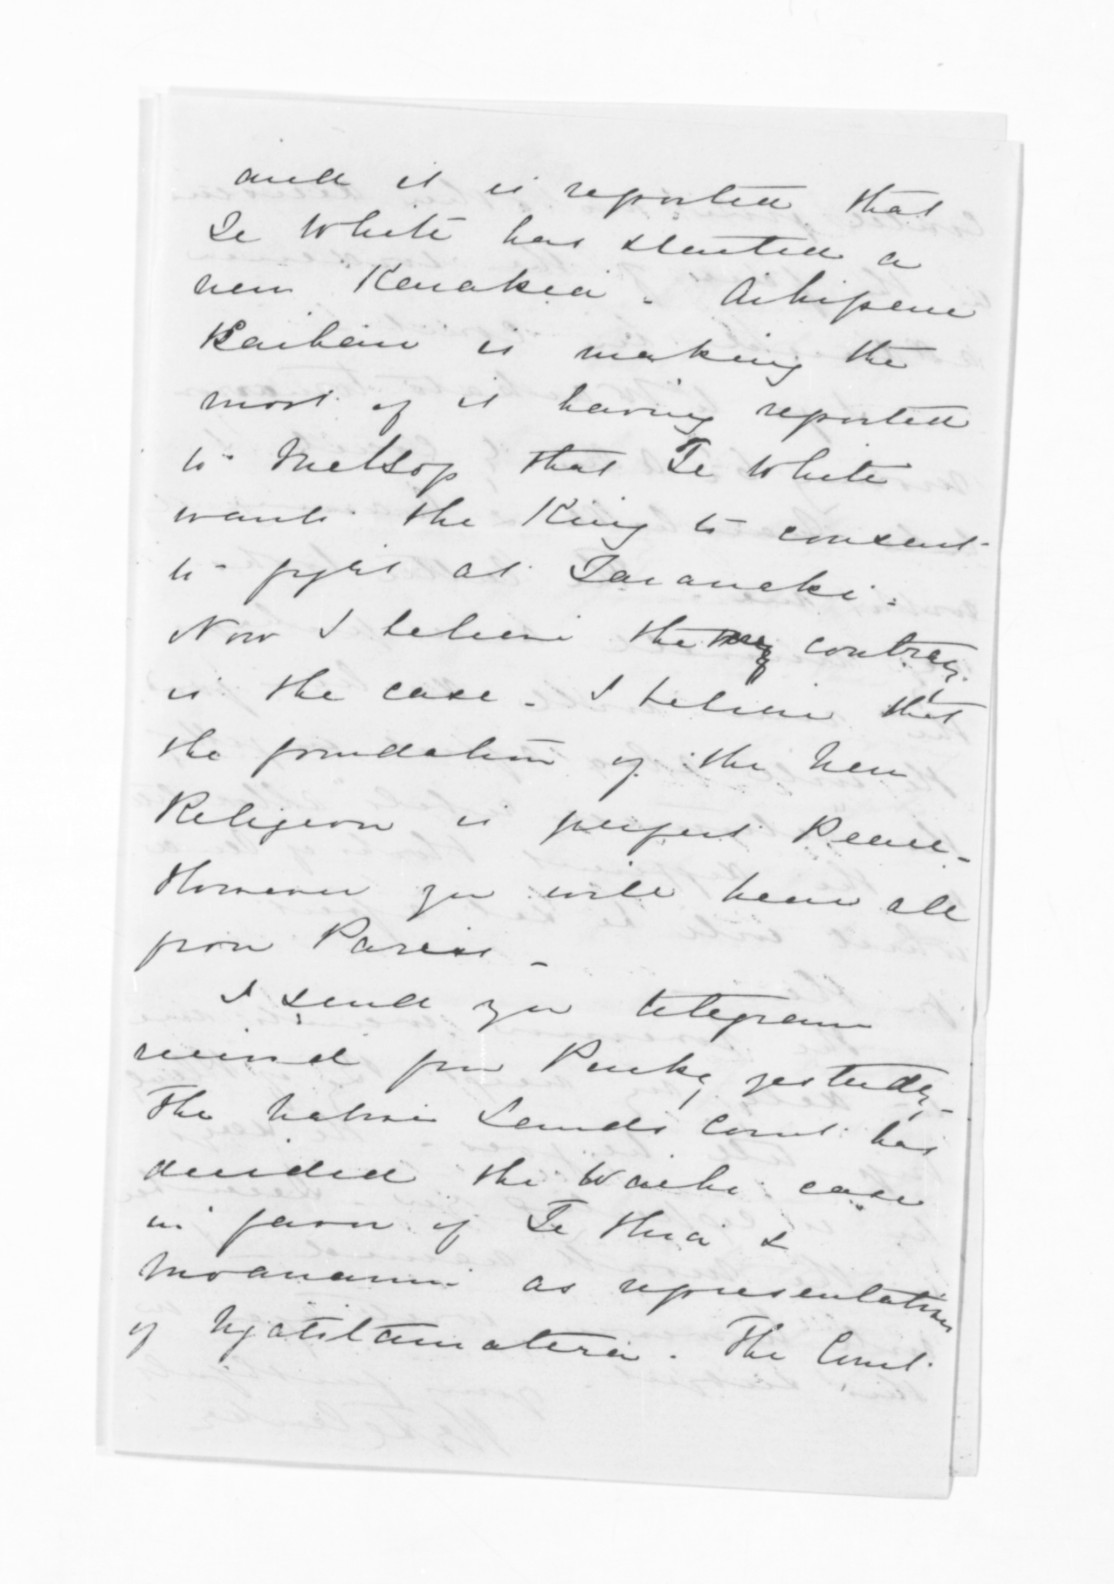 and it is reported that
Te White has started a
new Karakia. Aihipene
Kaihau is making the
most of it having reported
to Mellsop that Te White
wants the King to consent
to fight at Taranaki.
Now I believe the contrary
is the case. I believe that
the foundation of the New
Religion is perfect Peace.
However you will hear all
from Paris.
I send you telegram
received from Puckey yesterday.
The Native Lands Court has
decided the Waihi case
in favor of Te Hira &
Moananui as representatives
of Ngatitamatera. The Court